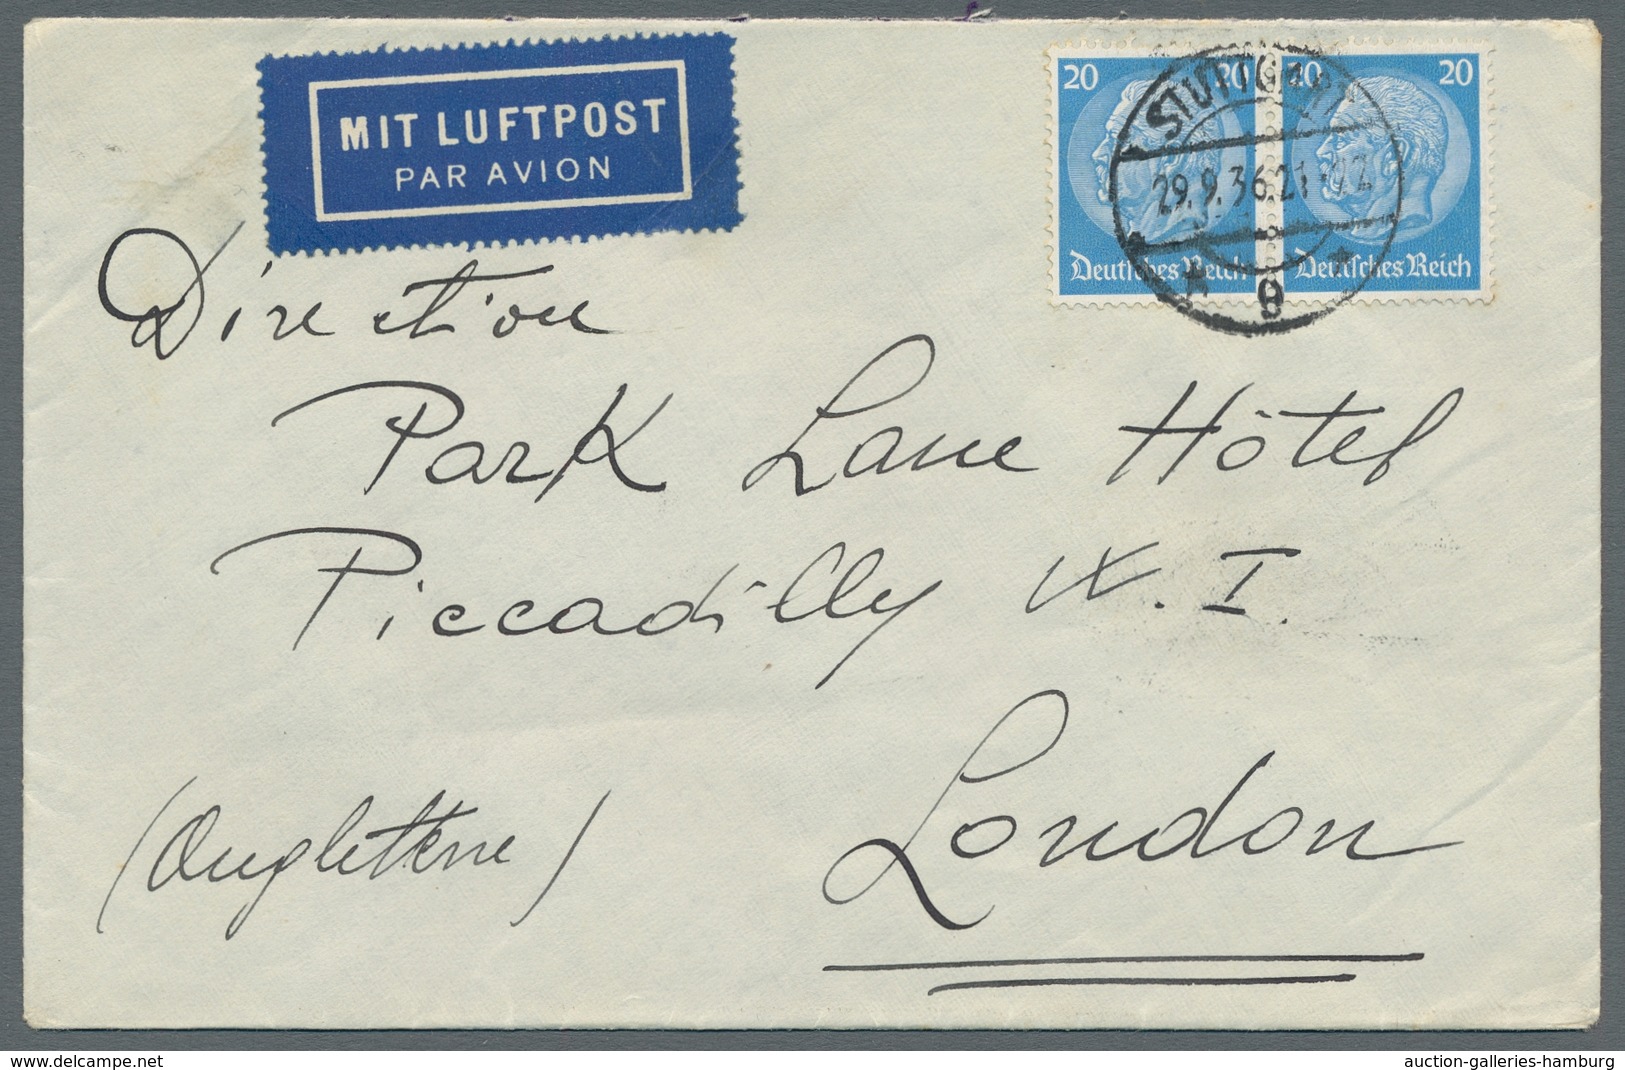 MIT LUFTPOST
PAR AVION
20 20 20 20
STUTTGART
29.9.36.21-22
Deutsches Reich Deutsches Reich
* 9 *
Direction
Park Lane Hôtel
Piccadilly W. I.
London
(Angleterre)
delcampe.net
auction-galleries-hamburg